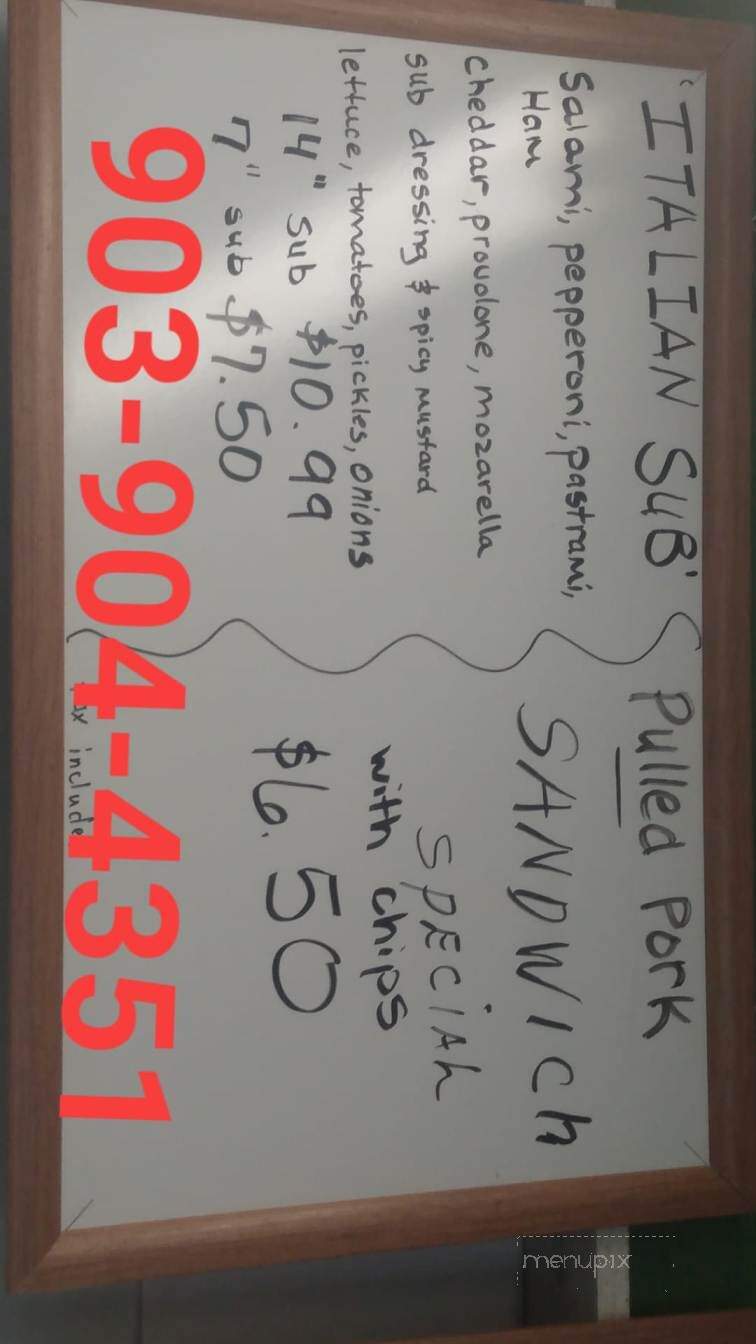 'ITALIAN SUB'
Salami, pepperoni, pastrami,
Ham
Cheddar, provolone, mozarella
sub dressing & spicy mustard
lettuce, tomatoes, pickles, onions
14" sub $10.99
7" sub $7.50
Pulled Pork
SANDWICH
SPECIAL
with chips
$6.50
include
903-904-4351
menupix